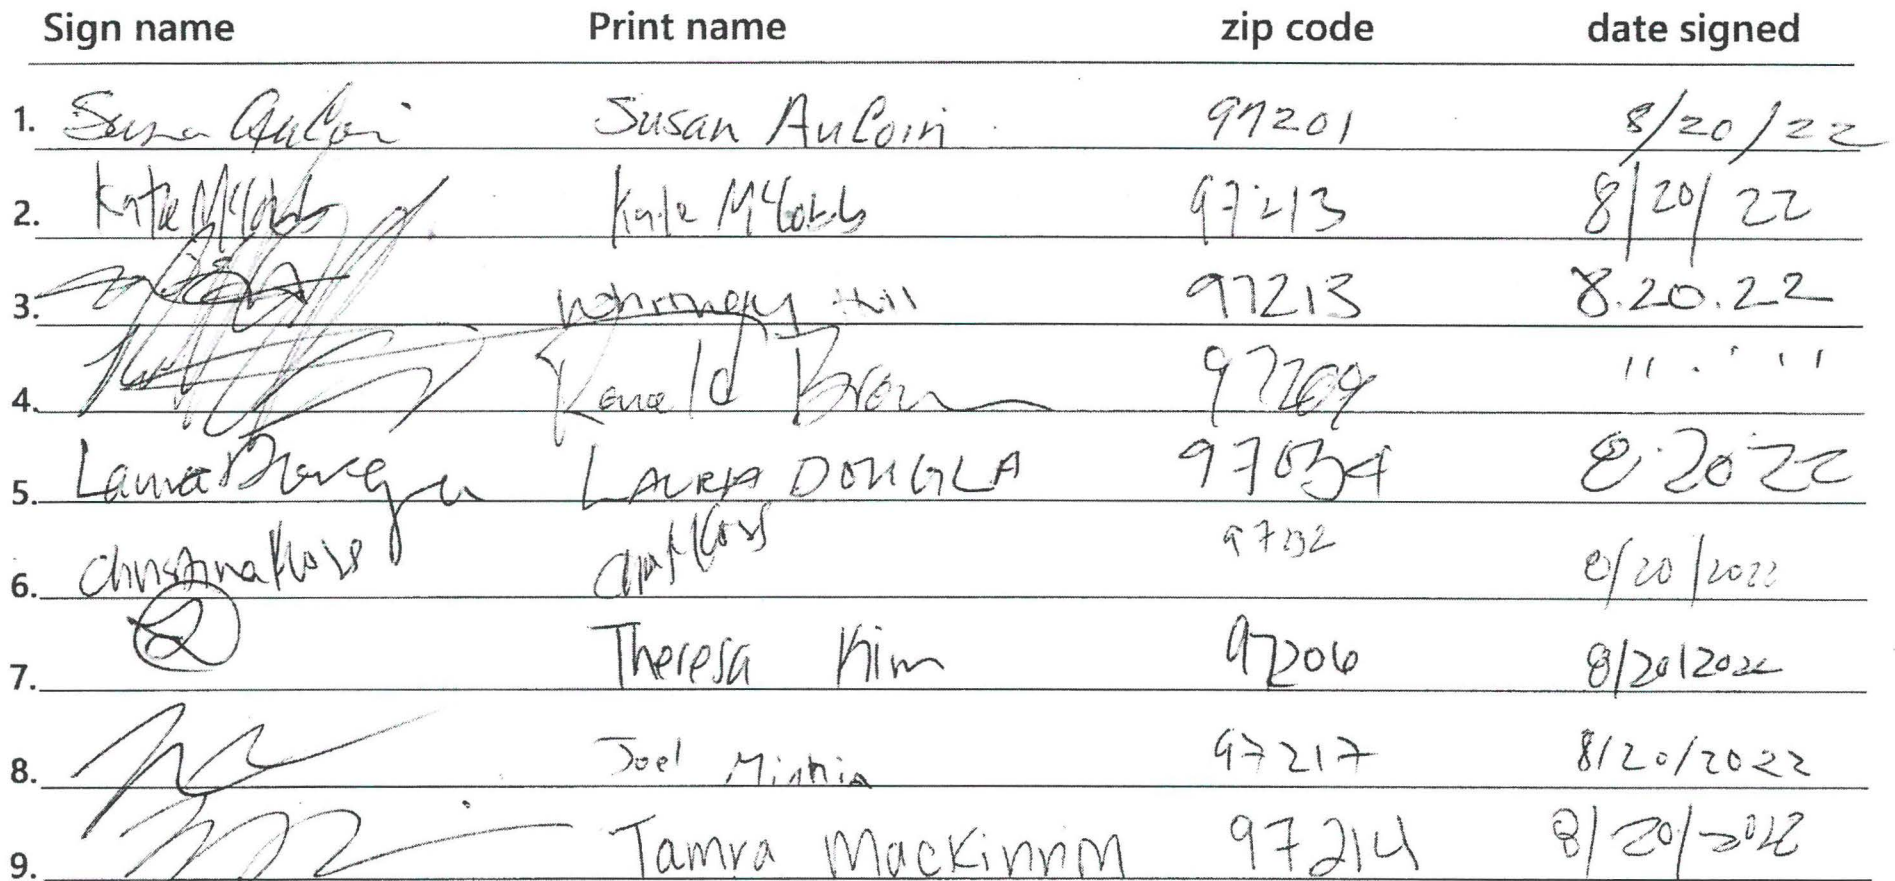 Sign name Print name zip code date signed
1. Susan AuCoin Susan AuCoin 97201 8/20/22
2. Kate McCobb Kate McCobb 97213 8/20/22
3. 97213 8.20.22
4. Ronald Brown " . ' ' '
5. Laura LAURA DOUGLA 97034 8.20 22
6. Christina Kloss Kloss 8/20/2022
7. Theresa Kim 97206 8/20/2022
8. Joel 97217 8/20/2022
9. Tamra MacKinnon 97214 8/20/2022